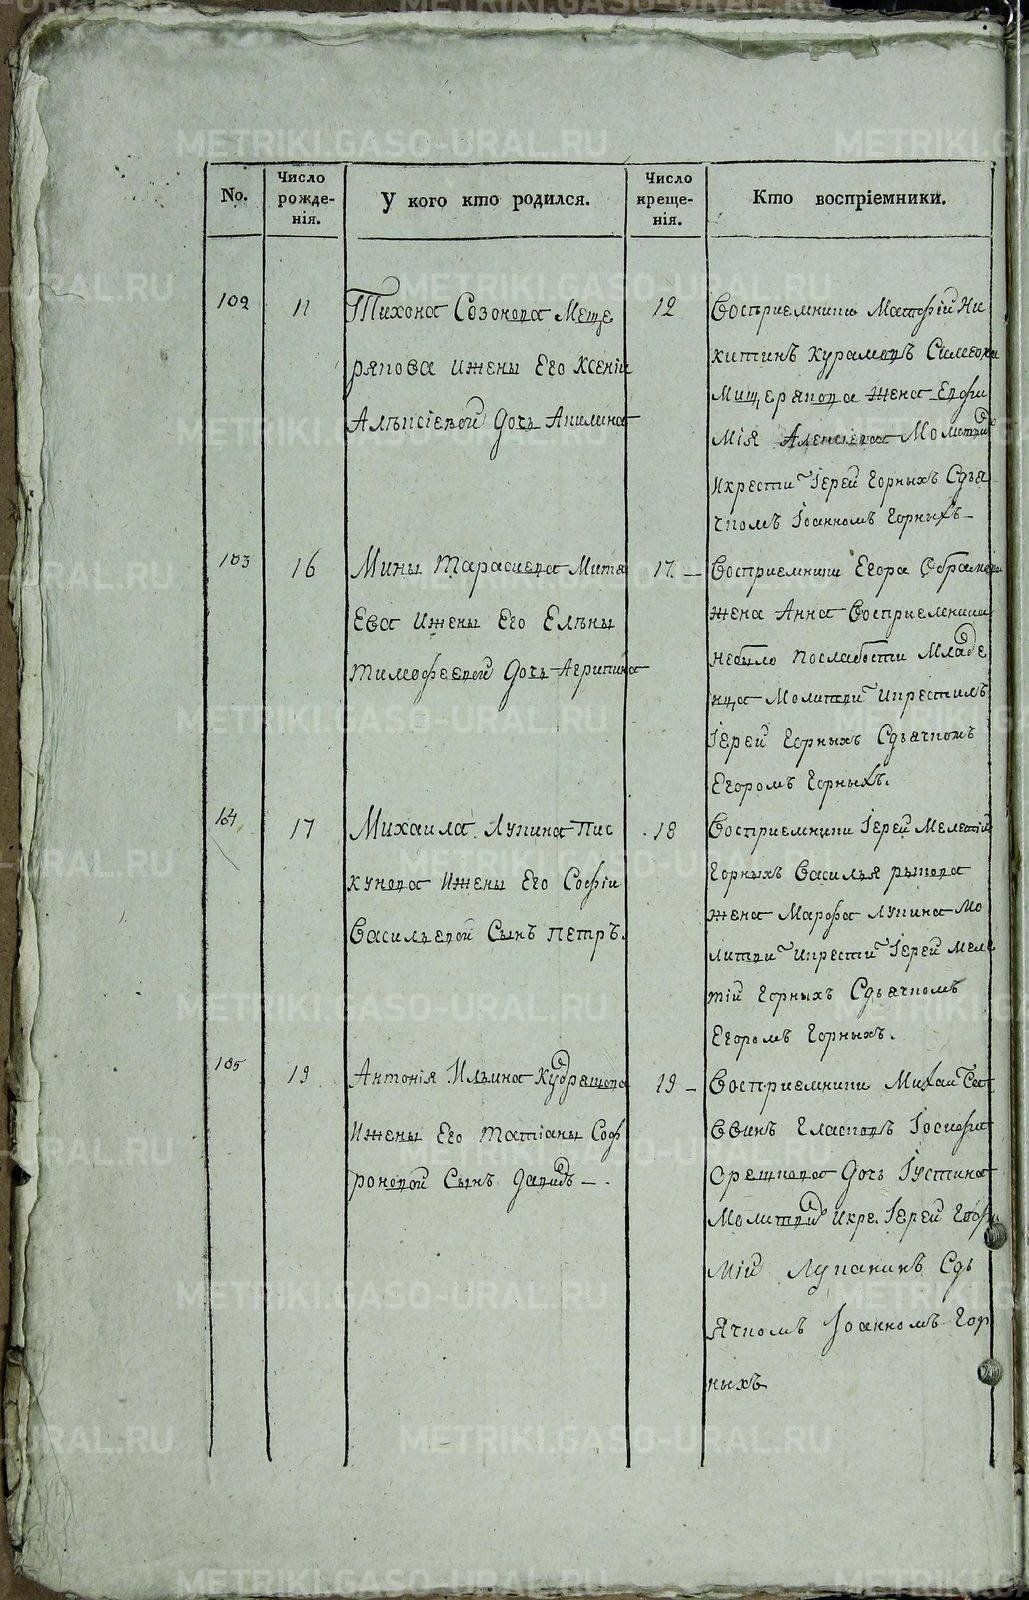 No.
Число рожде-нія.
У кого кто родился.
Число креще-нія.
Кто воспріемники.
102
11
Тихона Созонова Меще
рякова ижены Его Ксеніи
Алѣксіевой дочь Акилина
12
Восприемники Матфій Ни
китинъ Курамовъ Симеона
Мищерякова жена Евфи
мія Алексіева Молитви
икрести Іерей Горныхъ Сдья
чкомъ Іоанномъ Горныхъ
103
16
Мины Тарасиева Мите
ева ижены Его Елѣны
Тимофеевой дочь Агрипина
17
Восприемники Егора
жена Анна Восприемника
небыло послабости Младе
нца Молитви икрестилъ
Іерей Горныхъ Сдьячкомъ
Егоромъ Горныхъ.
104
17
Михаила Лупина Пис
кунова ижены Его Софіи
Васильевой Сынъ Петръ.
18
Восприемники Іерей Мелетій
Горныхъ Василья рыкова
жена Марфа Лупина Мо
литви икрести Іерей Меле
тій Горныхъ Сдьячкомъ
Егоромъ Горныхъ.
105
19
Антонія Ильина Кудрешова
ижены Его Татіаны Соф
роновой Сынъ Давидъ
19
Восприемники Михаи Сав
ввинъ Гласковъ Іосифа
Орешкова дочь Іустина
Молитвиᲂ икре. Іерей Евфи
мій Лупанинъ Сдь
ячкомъ Іоанномъ Гор
ныхъ
METRIKI.GASO-URAL.RU